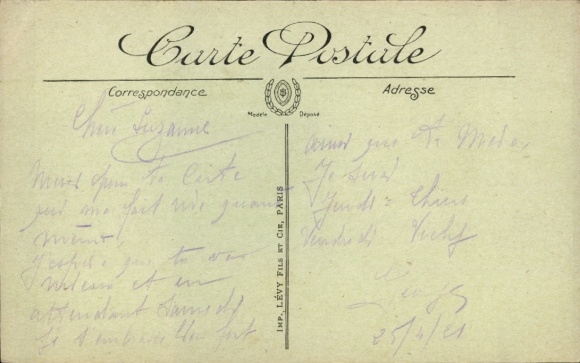 Carte Postale
Correspondance
Adresse
Modèle Déposé
Chère Suzanne
Merci pour ta Carte
qui m'a fait rire quand
même,
J'espère que tu vas
mieux et en
attendant Samedi
Je t'embrasse bien fort
IMP. LÉVY FILS ET CIE, PARIS
ainsi que ta
Je serai
Jeudi =
Vendredi Vichy
25/4/21